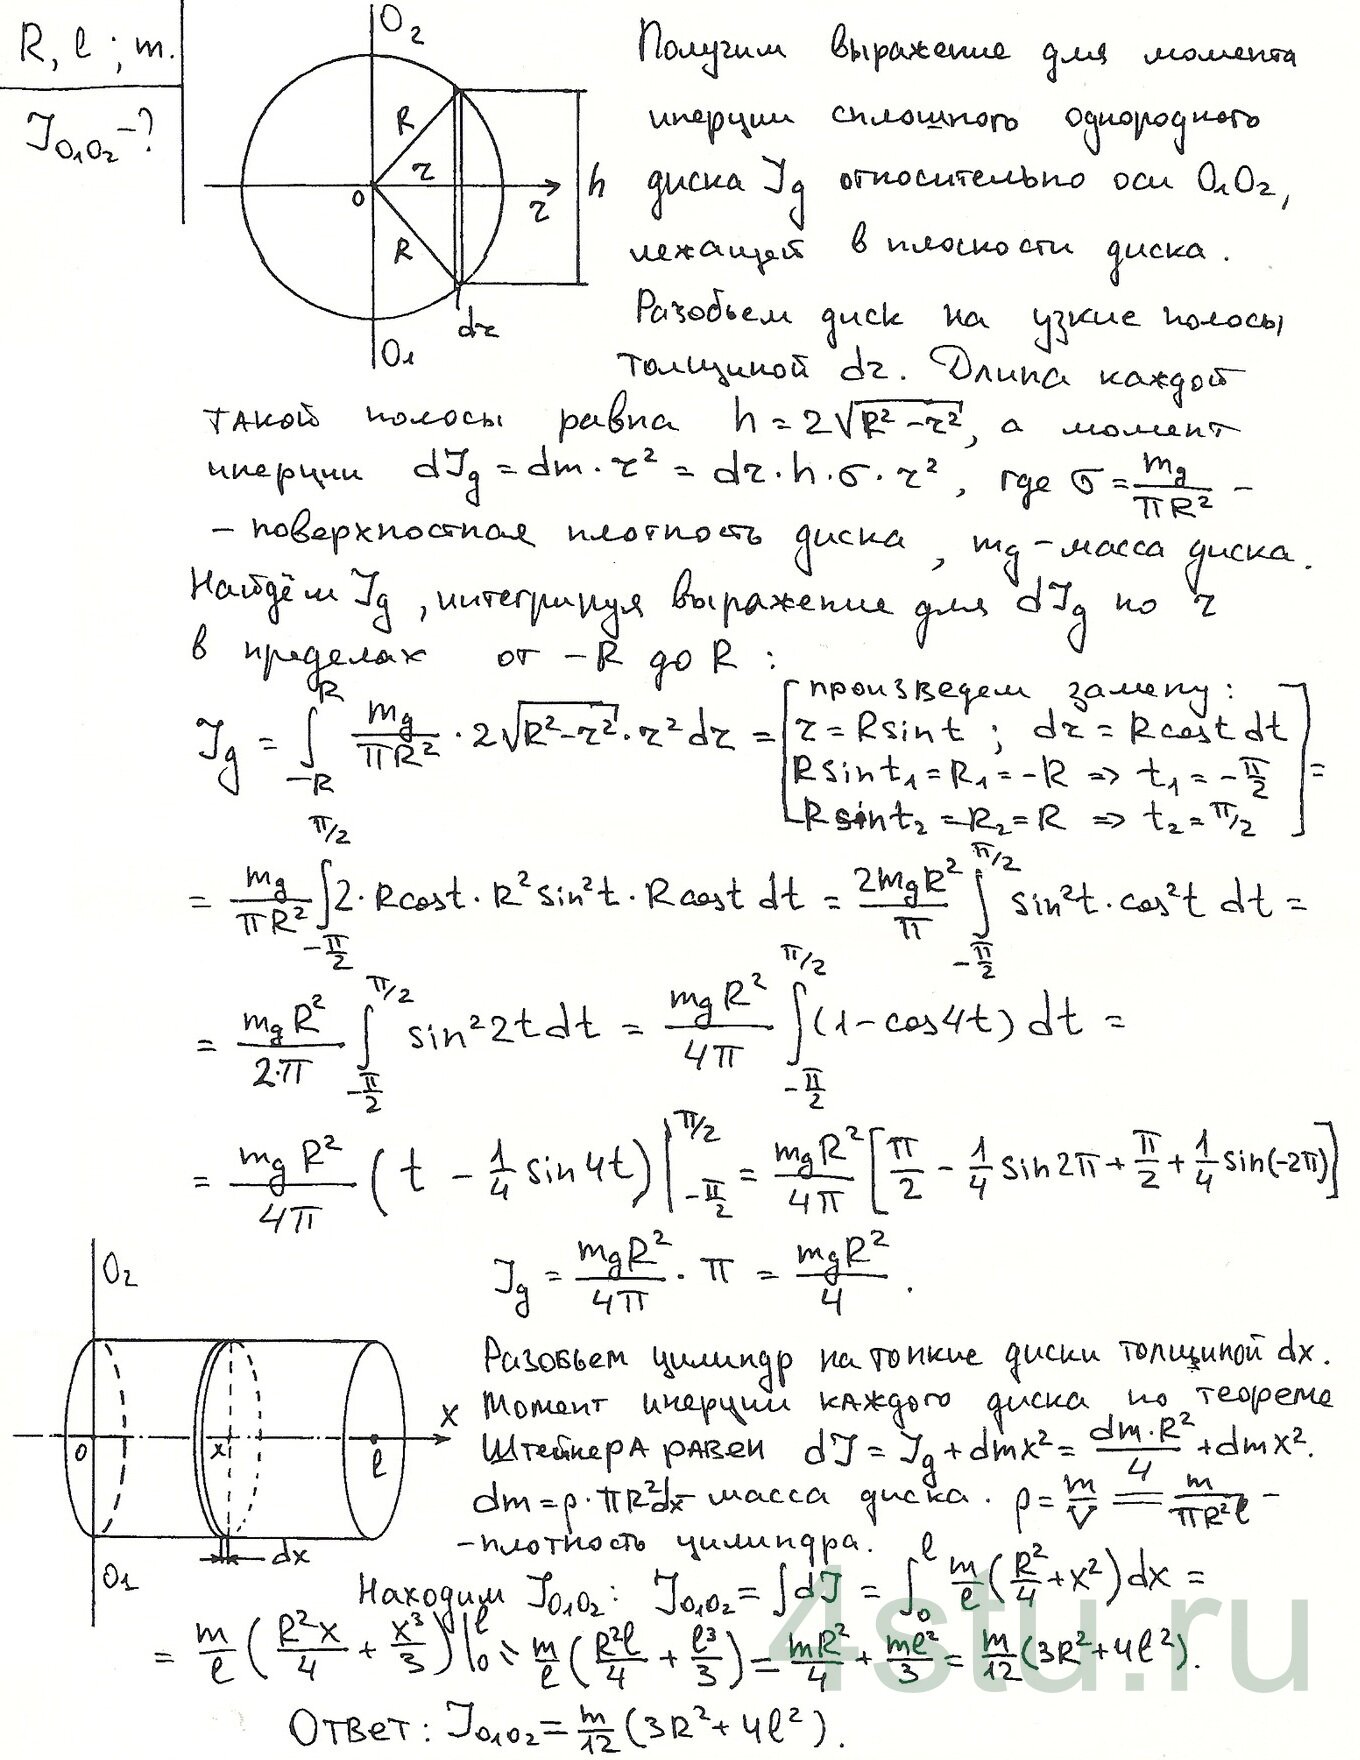 R, l ; m.
J_{O₁O₂} - ?
O₂
R
r
O
r
R
h
dr
O₁
Получим выражение для момента
инерции сплошного однородного
диска J_g относительно оси O₁O₂,
лежащей в плоскости диска.
Разобьем диск на узкие полосы
толщиной dr. Длина каждой
такой полосы равна h = 2√(R² - r²), а момент
инерции dJ_g = dm · r² = dr · h · σ · r², где σ = m_g/(πR²) -
- поверхностная плотность диска, m_g - масса диска.
Найдём J_g, интегрируя выражение для dJ_g по r
в пределах от -R до R :
J_g = ∫_{-R}^{R} m_g/(πR²) · 2√(R² - r²) · r² dr = [произведем замену:
r = R sin t ; dr = R cos t dt
R sin t₁ = R₁ = -R ⇒ t₁ = -π/2
R sin t₂ = R₂ = R ⇒ t₂ = π/2] =
= m_g/(πR²) ∫_{-π/2}^{π/2} 2 · R cos t · R² sin² t · R cos t dt = 2m_gR²/π ∫_{-π/2}^{π/2} sin² t · cos² t dt =
= m_gR²/(2·π) ∫_{-π/2}^{π/2} sin² 2t dt = m_gR²/(4π) ∫_{-π/2}^{π/2} (1 - cos 4t) dt =
= m_gR²/(4π) (t - 1/4 sin 4t) |_{-π/2}^{π/2} = m_gR²/(4π) [π/2 - 1/4 sin 2π + π/2 + 1/4 sin(-2π)]
J_g = m_gR²/(4π) · π = m_gR²/4 .
O₂
O
x
l
X
dx
O₁
Разобьем цилиндр на тонкие диски толщиной dx.
Момент инерции каждого диска по теореме
Штейнера равен dJ = J_g + dm x² = dm·R²/4 + dm x².
dm = ρ · πR²dx - масса диска. ρ = m/V = m/(πR²l) -
- плотность цилиндра.
Находим J_{O₁O₂}: J_{O₁O₂} = ∫dJ = ∫_0^l m/l (R²/4 + x²) dx =
= m/l (R²x/4 + x³/3) |_0^l = m/l (R²l/4 + l³/3) = mR²/4 + ml²/3 = m/12 (3R² + 4l²).
Ответ: J_{O₁O₂} = m/12 (3R² + 4l²).
4stu.ru